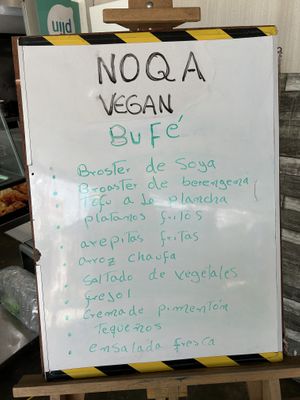 plin
NOQA
VEGAN
BUFÉ
• Broster de Soya
• Broaster de berengena
• Tofu a la plancha
• platanos fritos
• arepitas fritas
• arroz chaufa
• Saltado de vegetales
• frejol
• Crema de pimentón
• Tequeños
• ensalada fresca